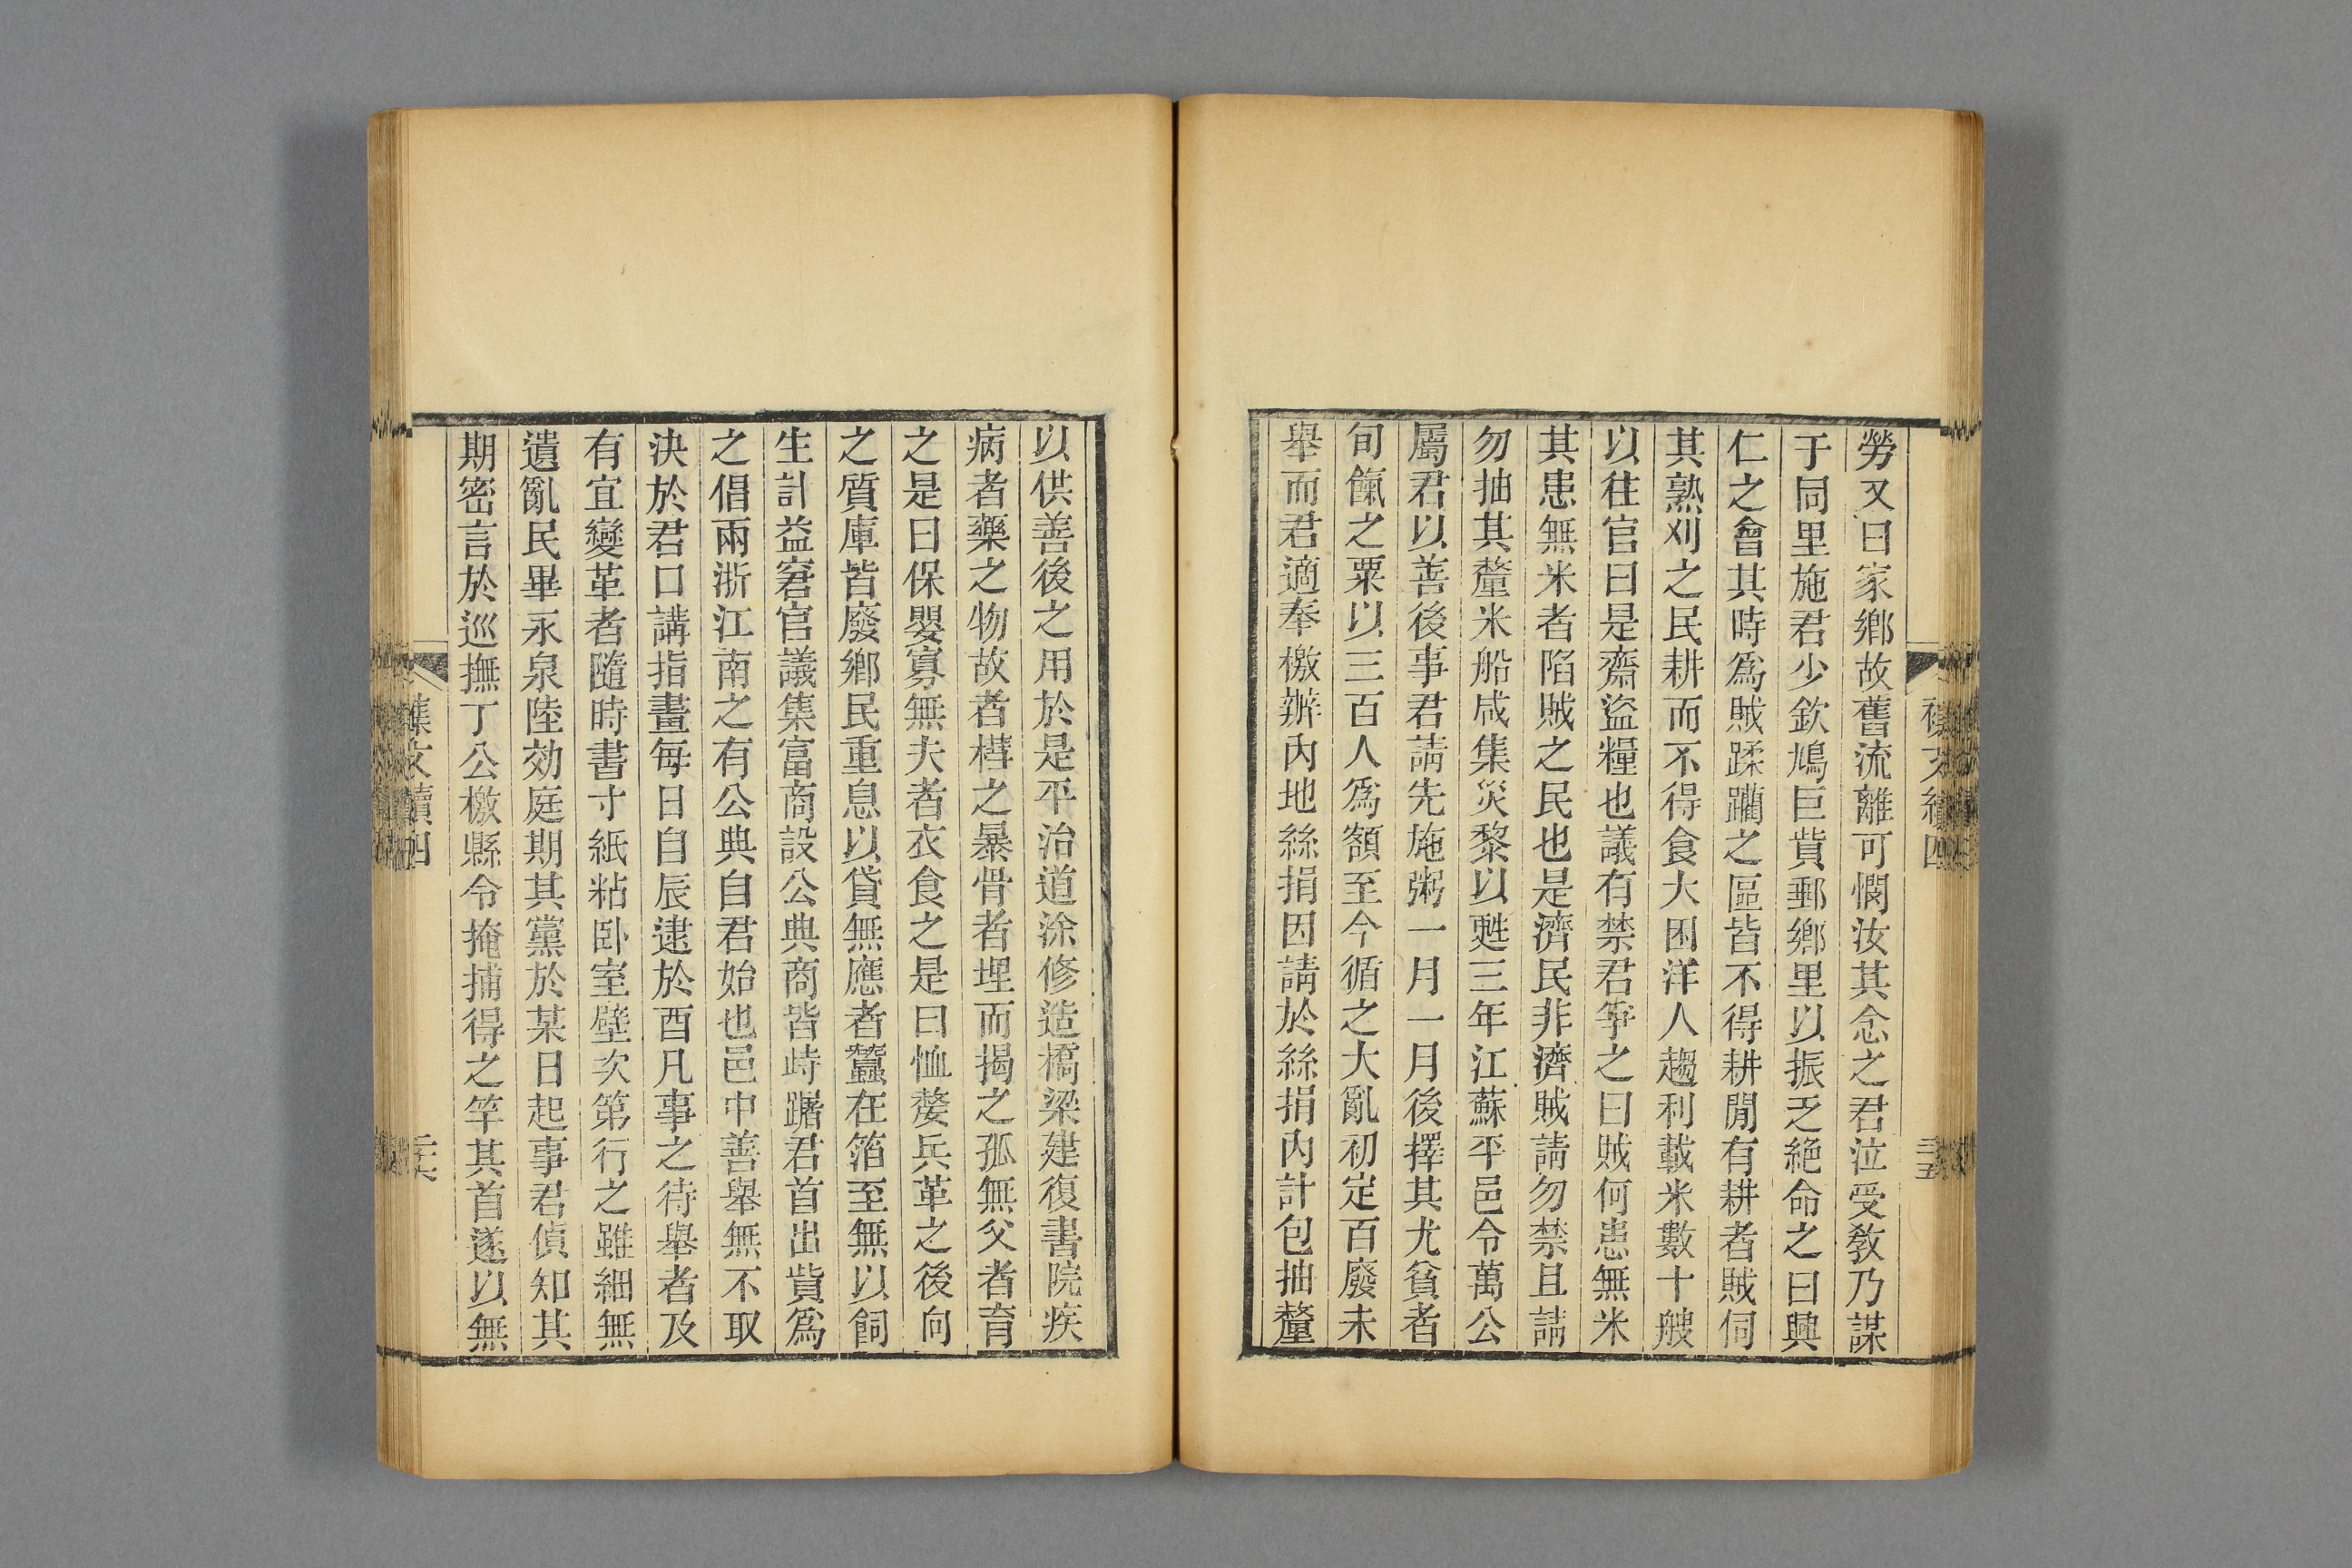 勞又曰家鄉故舊流離可憫汝其念之君泣受敎乃謀
于同里施君少欽鳩巨貲郵鄉里以振乏絕命之曰興
仁之會其時爲賊蹂躪之區皆不得耕閒有耕者賊伺
其熟刈之民耕而不得食大困洋人趨利載米數十艘
以往官曰是齎盜糧也議有禁君爭之曰賊何患無米
其患無米者陷賊之民也是濟民非濟賊請勿禁且請
勿抽其釐米船咸集災黎以甦三年江蘇平邑令萬公
屬君以善後事君請先施粥一月一月後擇其尤貧者
旬餼之粟以三百人爲額至今循之大亂初定百廢未
舉而君適奉檄辦內地絲捐因請於絲捐內計包抽釐
以供善後之用於是平治道涂修造橋梁建復書院疾
病者藥之物故者槥之暴骨者埋而揭之孤無父者育
之是曰保嬰寡無夫者衣食之是曰恤嫠兵革之後向
之質庫皆廢鄉民重息以貸無應者蠶在箔至無以飼
生計益窘官議集富商設公典商皆峙躇君首出貲爲
之倡兩浙江南之有公典自君始也邑中善舉無不取
決於君口講指畫每日自辰逮於酉凡事之待舉者及
有宜變革者隨時書寸紙粘臥室壁次第行之雖細無
遺亂民畢永泉陸効庭期其黨於某日起事君偵知其
期密言於巡撫丁公檄縣令掩捕得之竿其首遂以無